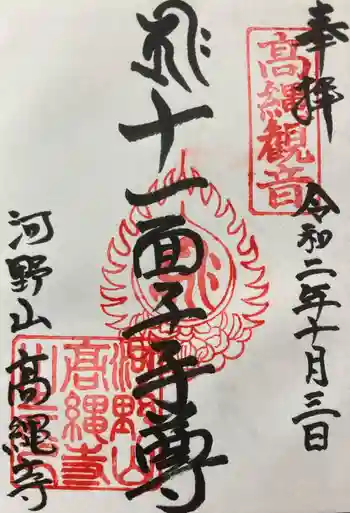 奉拝
令和二年十月三日
高縄観音
十一面千手尊
河野山
高縄寺
河野山
高縄寺